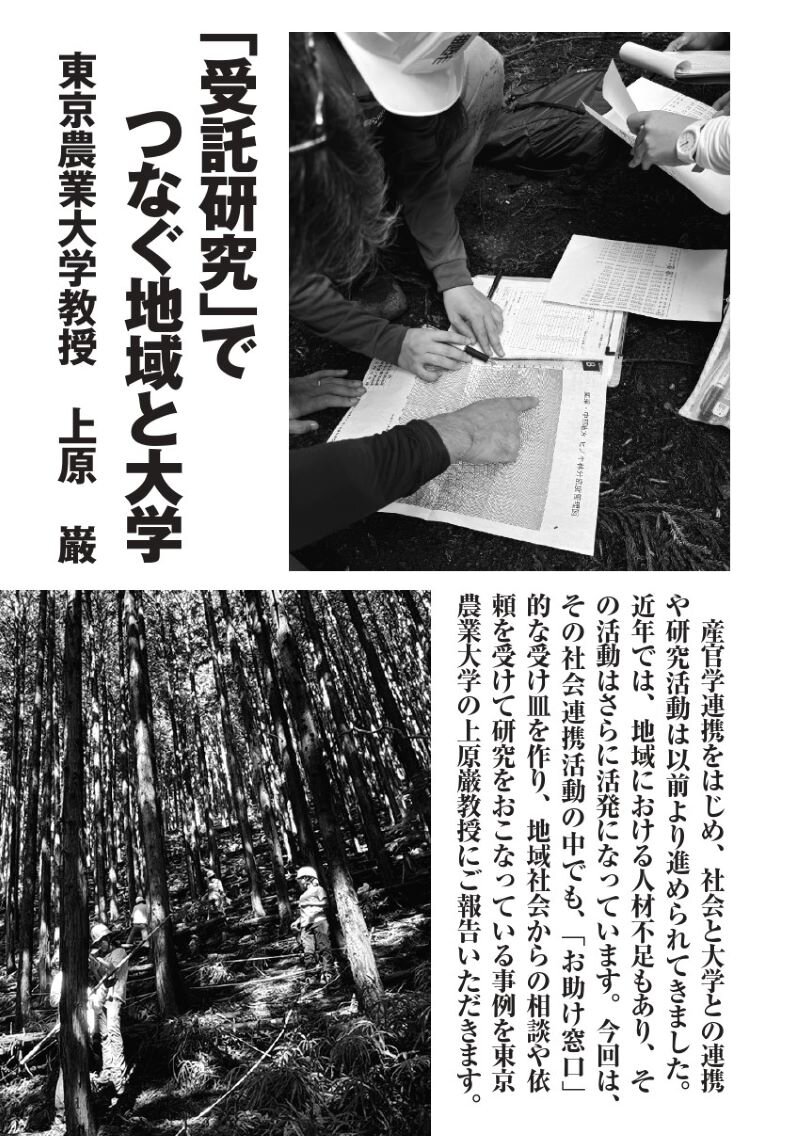 「受託研究」で
つなぐ地域と大学
東京農業大学教授 上原 巌
産官学連携をはじめ、社会と大学との連携
や研究活動は以前より進められてきました。
近年では、地域における人材不足もあり、そ
の活動はさらに活発になっています。今回は、
その社会連携活動の中でも、「お助け窓口」
的な受け皿を作り、地域社会からの相談や依
頼を受けて研究をおこなっている事例を東京
農業大学の上原巌教授にご報告いただきます。